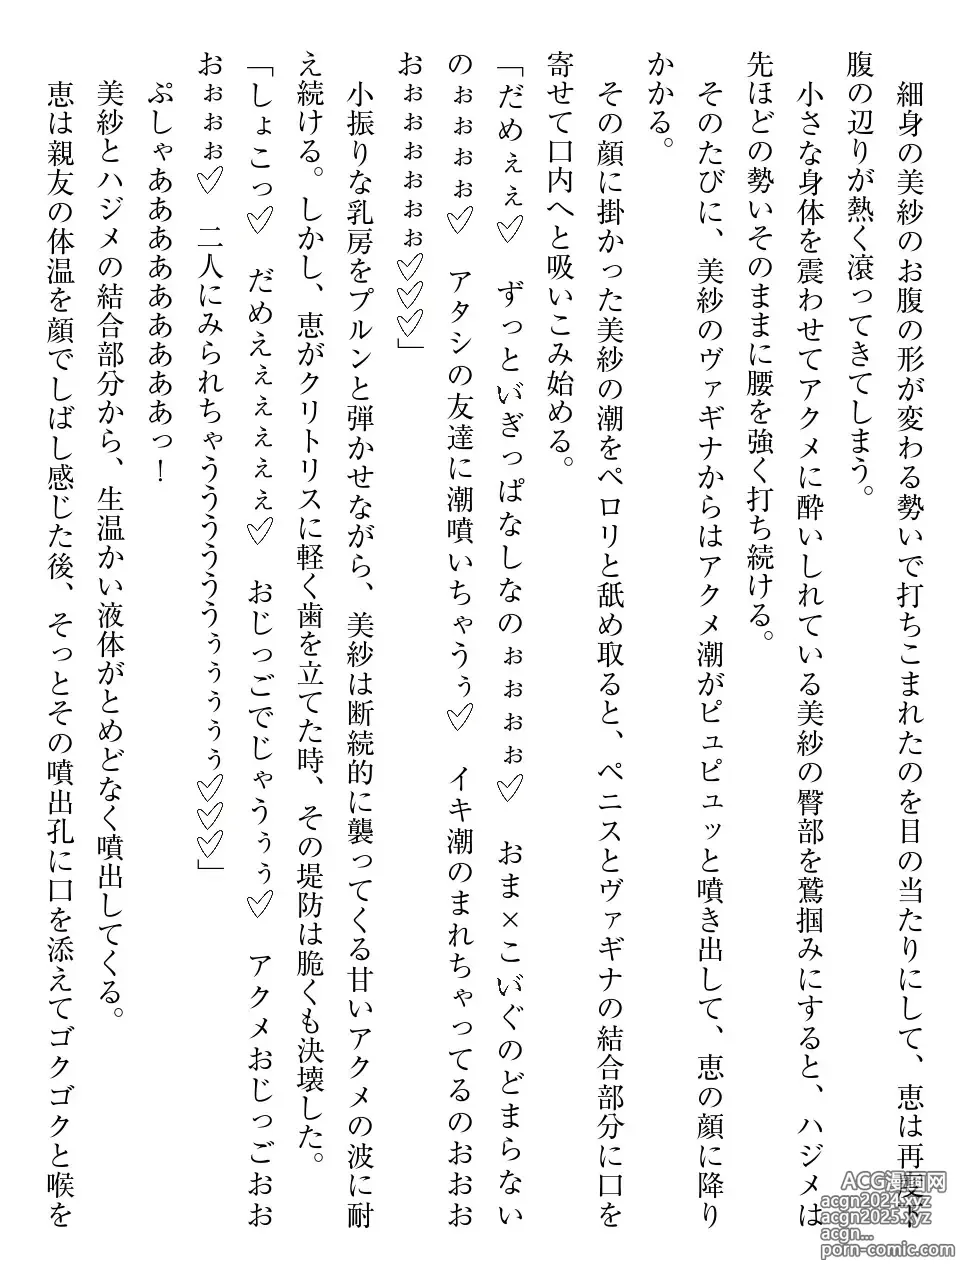 細身の美紗のお腹の形が変わる勢いで打ちこまれたのを目の当たりにして、恵は再度下
腹の辺りが熱く滾ってきてしまう。
小さな身体を震わせてアクメに酔いしれている美紗の臀部を鷲掴みにすると、ハジメは
先ほどの勢いそのままに腰を強く打ち続ける。
そのたびに、美紗のヴァギナからはアクメ潮がピュピュッと噴き出して、恵の顔に降り
かかる。
その顔に掛かった美紗の潮をペロリと舐め取ると、ペニスとヴァギナの結合部分に口を
寄せて口内へと吸いこみ始める。
「だめぇぇ♡　ずっといぎっぱなしなのぉぉぉぉ♡　おま×こいぐのどまらない
のぉぉぉぉ♡　アタシの友達に潮噴いちゃうぅ♡　イキ潮のまれちゃってるのおおお
おぉぉぉぉぉぉ♡♡♡」
小振りな乳房をプルンと弾かせながら、美紗は断続的に襲ってくる甘いアクメの波に耐
え続ける。しかし、恵がクリトリスに軽く歯を立てた時、その堤防は脆くも決壊した。
「しょこっ♡　だめえぇぇぇぇぇ♡　おじっごでじゃうぅぅ♡　アクメおじっごおお
おぉぉぉ♡　二人にみられちゃうううううううぅぅぅぅぅ♡♡♡」
ぷしゃああああああああああっ！
美紗とハジメの結合部分から、生温かい液体がとめどなく噴出してくる。
恵は親友の体温を顔でしばし感じた後、そっとその噴出孔に口を添えてゴクゴクと喉を
ACG漫画网
acgn2024.xyz
acgn2025.xyz
acgn...
porn-comic.com